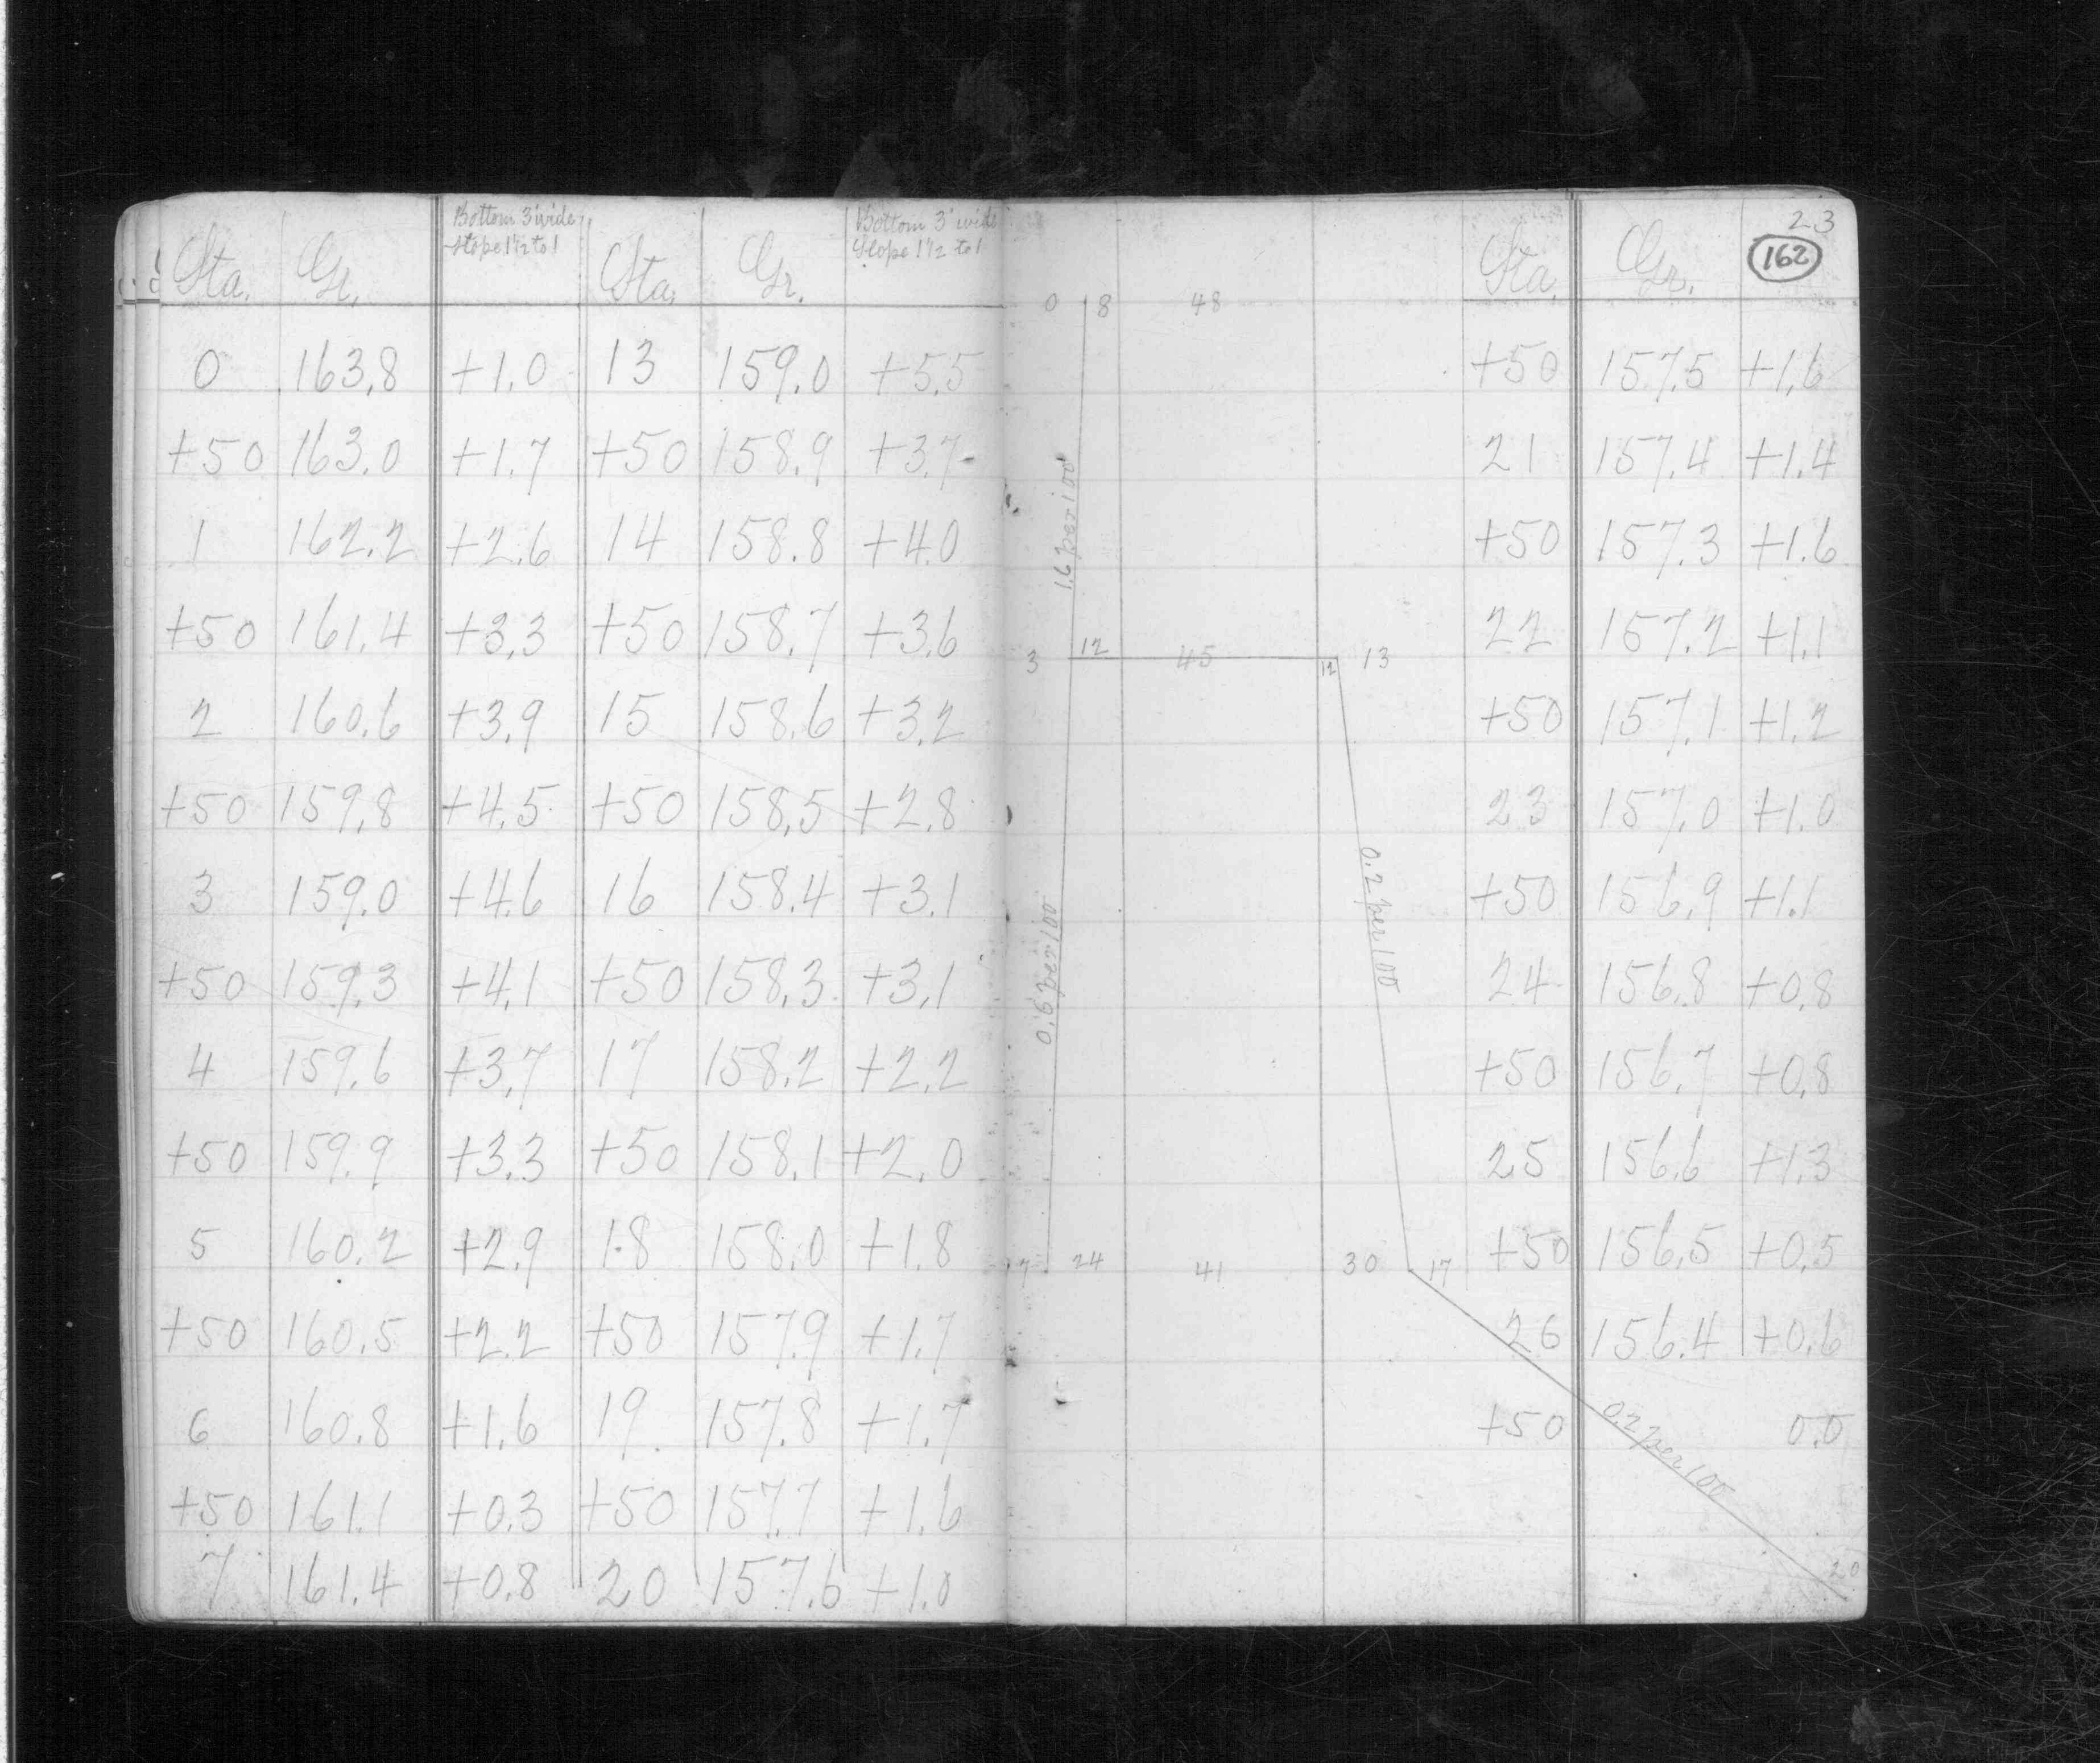 Bottom 3' wide Bottom 3' wide 23
Slope 1 1/2 to 1 Slope 1 1/2 to 1 162
Sta. Gr. Sta. Gr. Sta. Gr.
0 8 48
0 163.8 +1.0 13 159.0 +5.5 +50 157.5 +1.6
+50 163.0 +1.7 +50 158.9 +3.7 21 157.4 +1.4
1.6 per 100
1 162.2 +2.6 14 158.8 +4.0 +50 157.3 +1.6
+50 161.4 +3.3 +50 158.7 +3.6 22 157.2 +1.1
3 12 45 12 13
2 160.6 +3.9 15 158.6 +3.2 +50 157.1 +1.2
+50 159.8 +4.5 +50 158.5 +2.8 23 157.0 +1.0
3 159.0 +4.6 16 158.4 +3.1 +50 156.9 +1.1
0.6 per 100 0.2 per 100
+50 159.3 +4.1 +50 158.3 +3.1 24 156.8 +0.8
4 159.6 +3.7 17 158.2 +2.2 +50 156.7 +0.8
+50 159.9 +3.3 +50 158.1 +2.0 25 156.6 +1.3
5 160.2 +2.9 18 158.0 +1.8 +50 156.5 +0.5
7 24 41 30 17
+50 160.5 +2.2 +50 157.9 +1.7 26 156.4 +0.6
6 160.8 +1.6 19 157.8 +1.7 +50 0.0
0.2 per 100
+50 161.1 +0.3 +50 157.7 +1.6
7 161.4 +0.8 20 157.6 +1.0 20